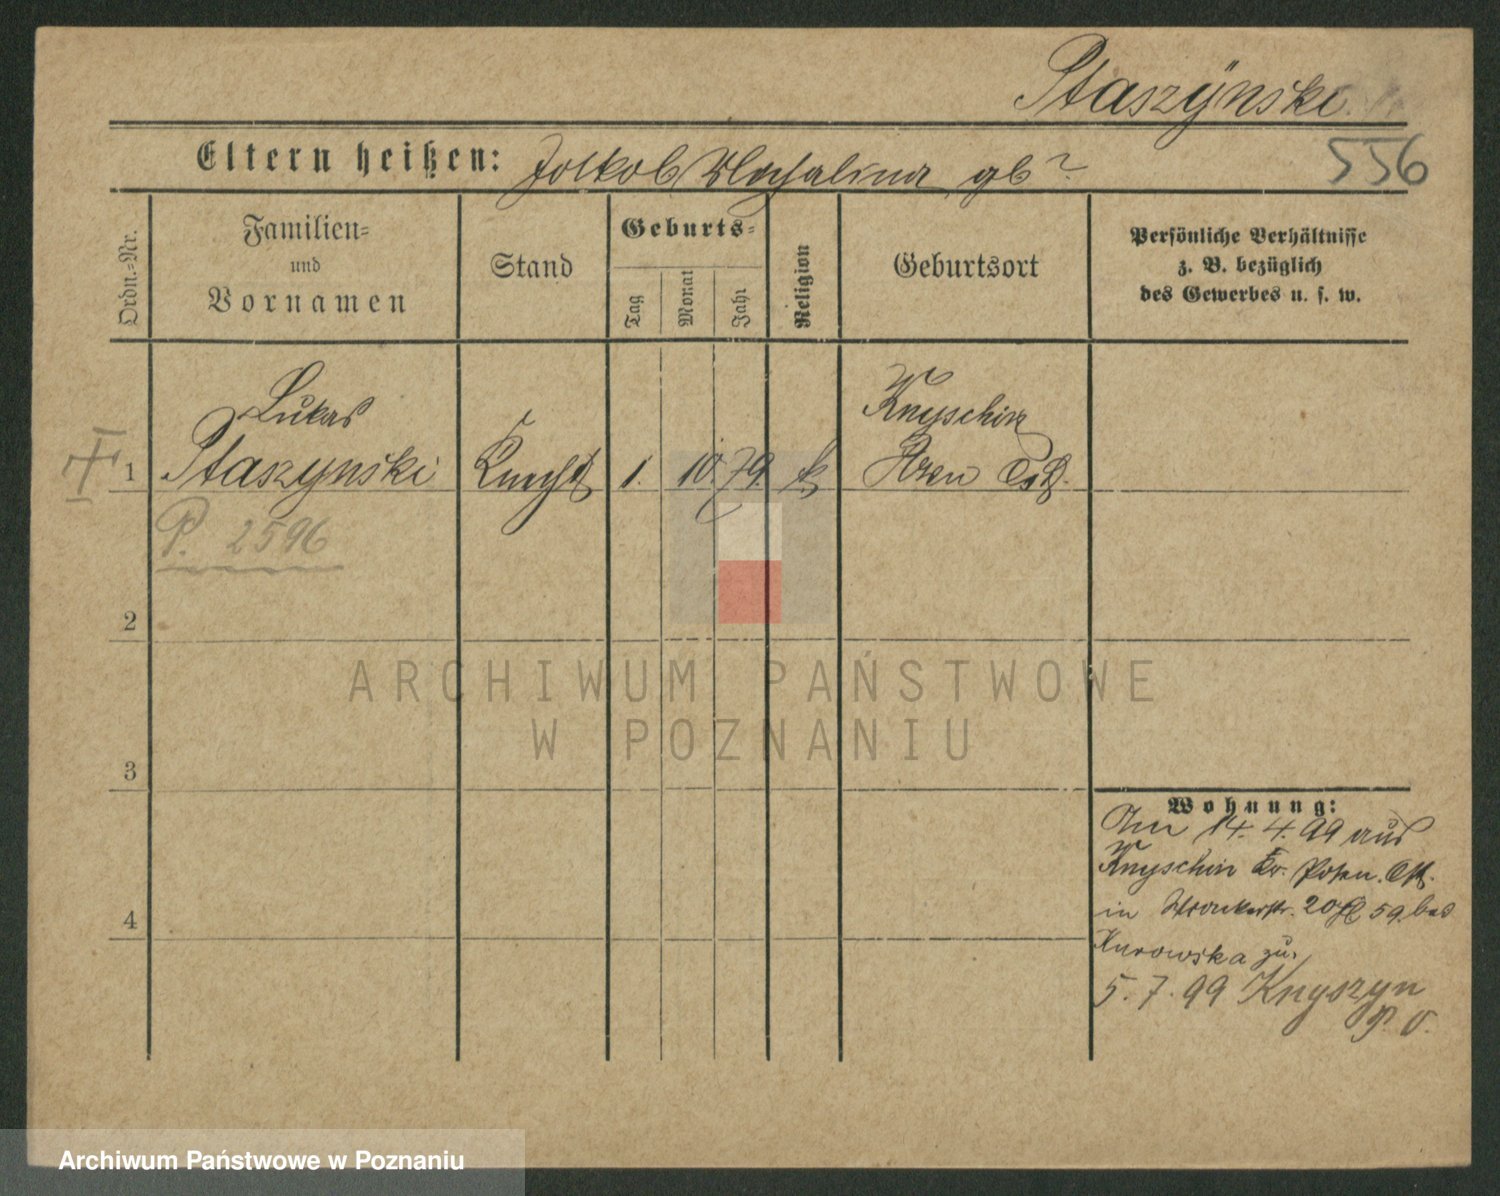 Staszÿnski.
Eltern heißen: Jakob Rosalina gb?
556
Ordn.-Nr.
Familien-
und
Vornamen
Stand
Geburts-
Tag
Monat
Jahr
Religion
Geburtsort
Persönliche Verhältnisse
z. B. bezüglich
des Gewerbes u. s. w.
Lukas
1 Staszynski Knecht 1. 10. 79. k
Knyschin
Posen Ost.
P. 2596
2
3
4
ARCHIWUM PAŃSTWOWE
W POZNANIU
Wohnung:
Am 14. 4. 99 aus
Knyschin Kr. Posen. Ost.
in Wronkerstr. 20 59. bei
Kurowska zu.
5. 7. 99 Knyszyn
P. O.
Archiwum Państwowe w Poznaniu